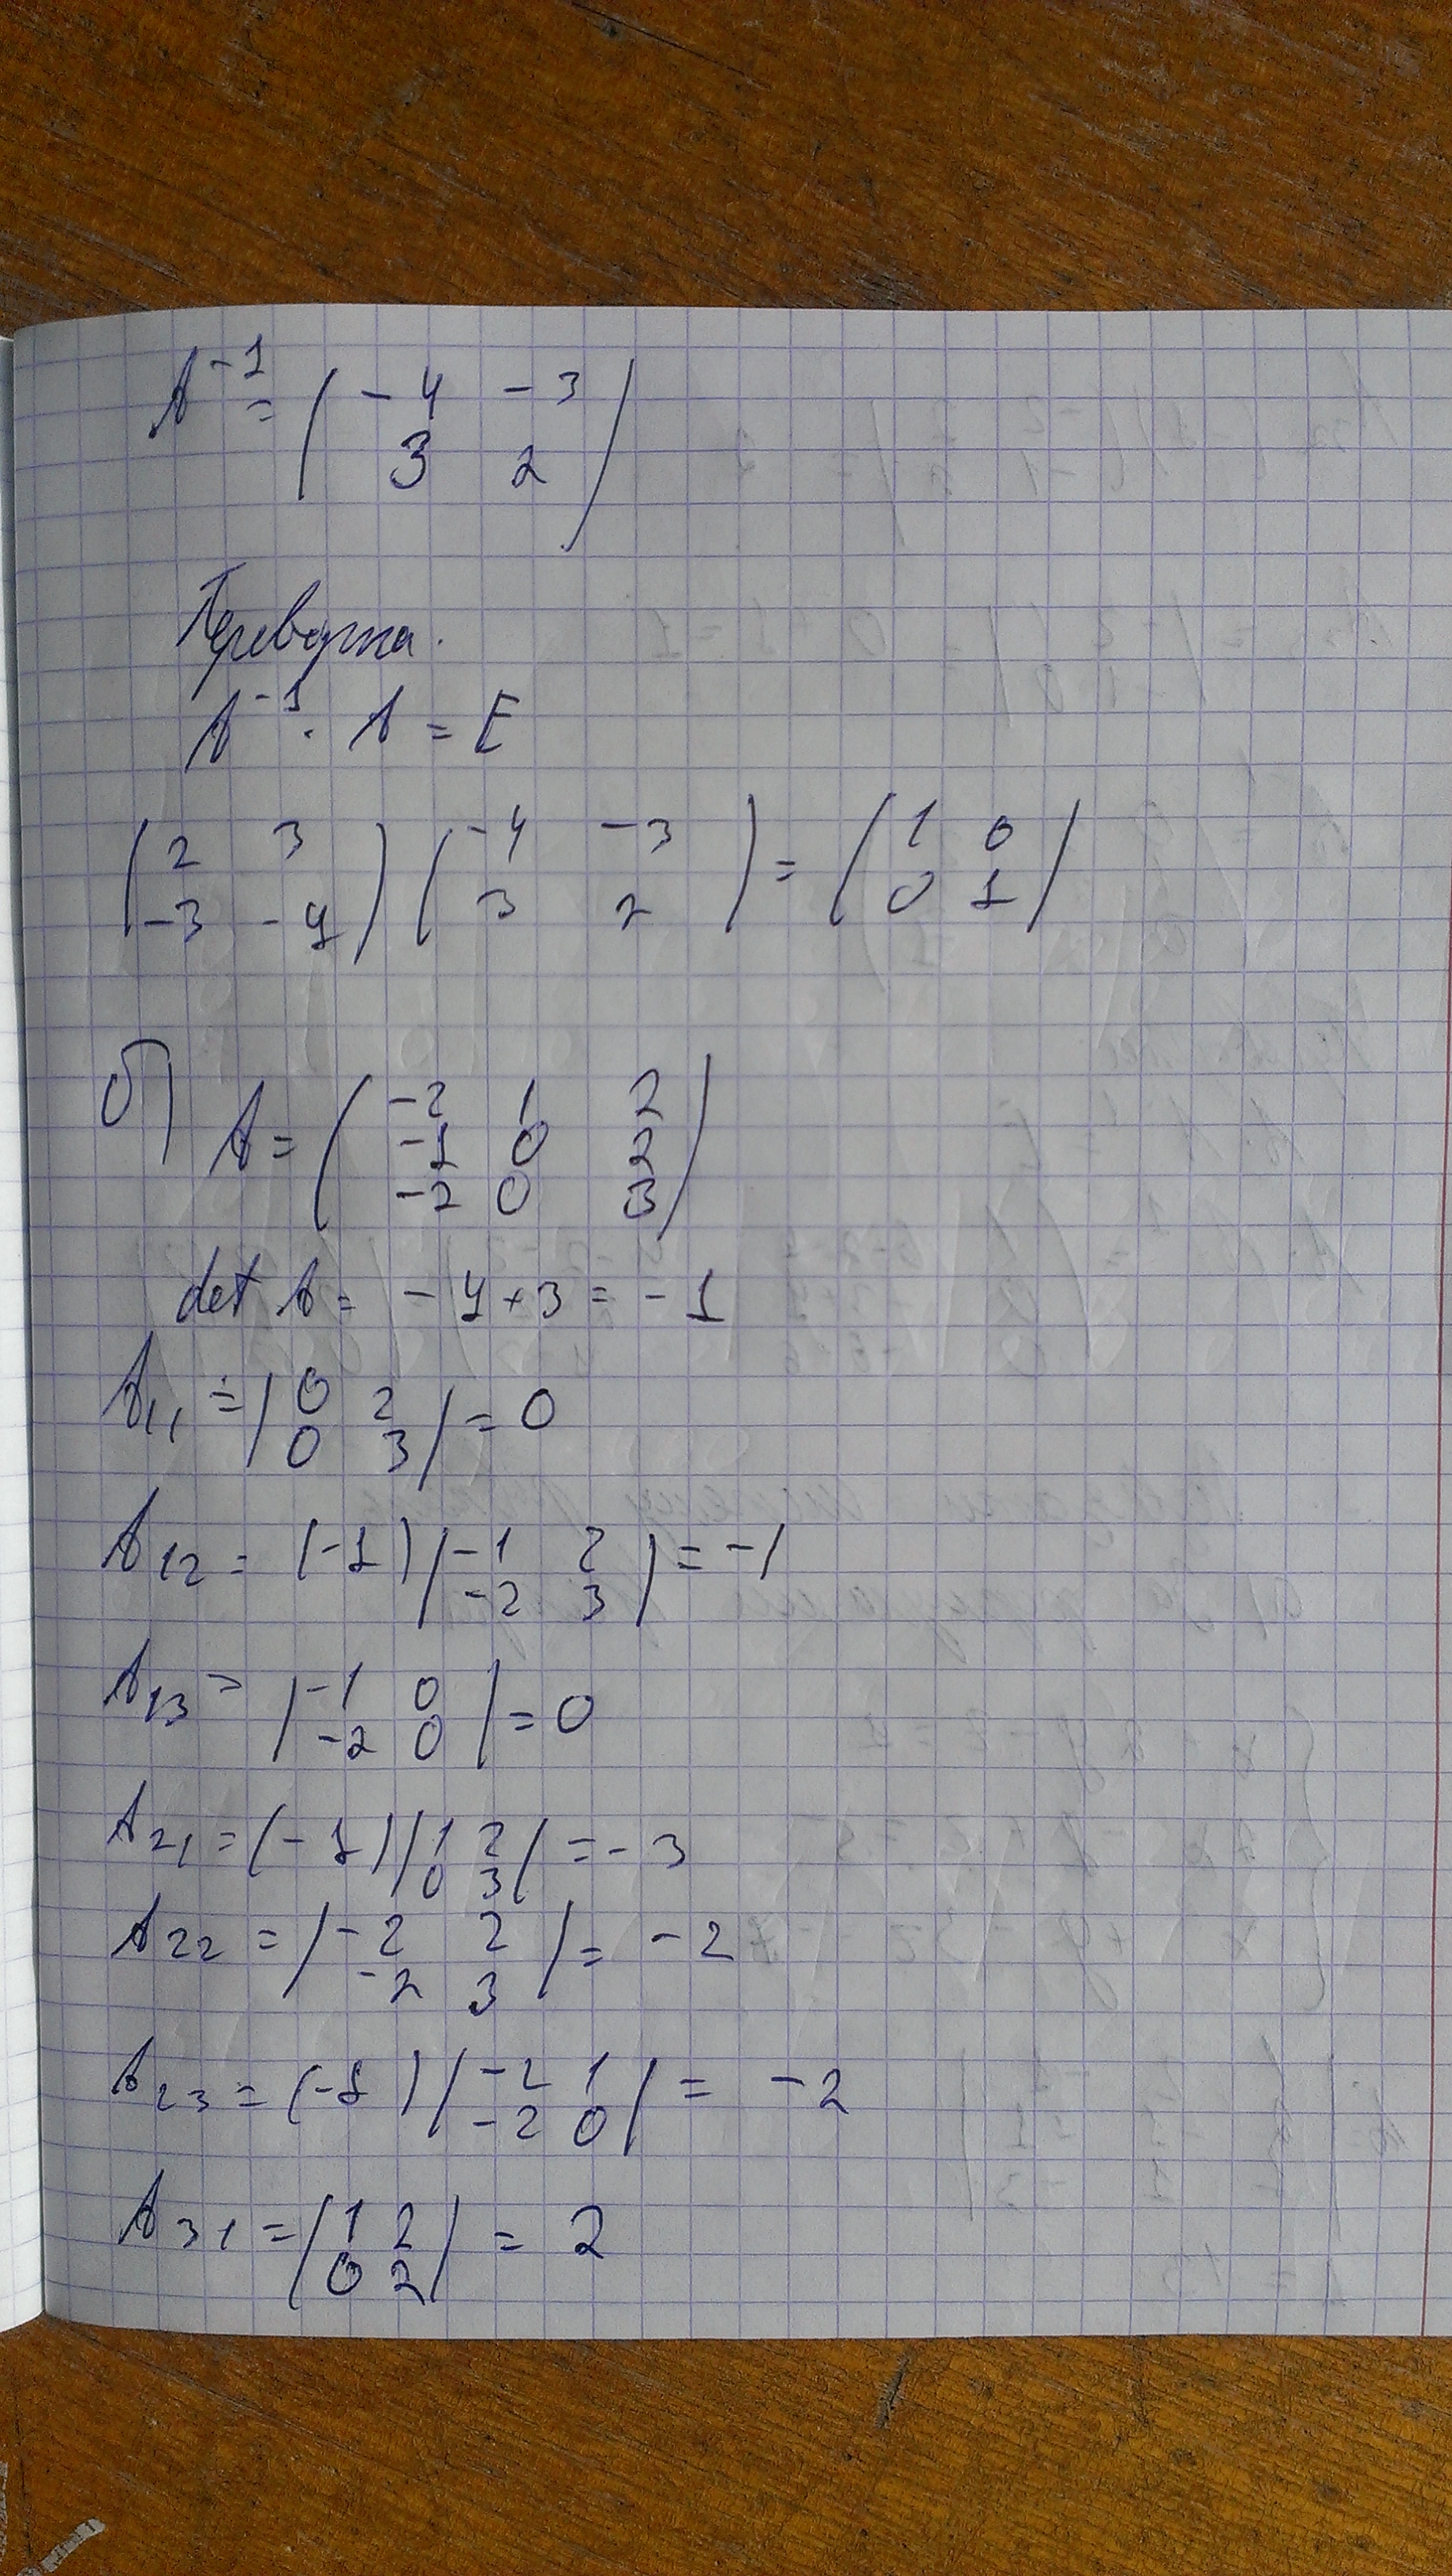 A⁻¹ = ( -4 -3
3 2 )
Перевірка.
A⁻¹ · A = E
( 2 3
-3 -4 ) ( -4 -3
3 2 ) = ( 1 0
0 1 )
б) A = ( -2 1 2
-1 0 2
-2 0 3 )
det A = -4 + 3 = -1
A₁₁ = | 0 2
0 3 | = 0
A₁₂ = (-1) | -1 2
-2 3 | = -1
A₁₃ = | -1 0
-2 0 | = 0
A₂₁ = (-1) | 1 2
0 3 | = -3
A₂₂ = | -2 2
-2 3 | = -2
A₂₃ = (-1) | -2 1
-2 0 | = -2
A₃₁ = | 1 2
0 2 | = 2